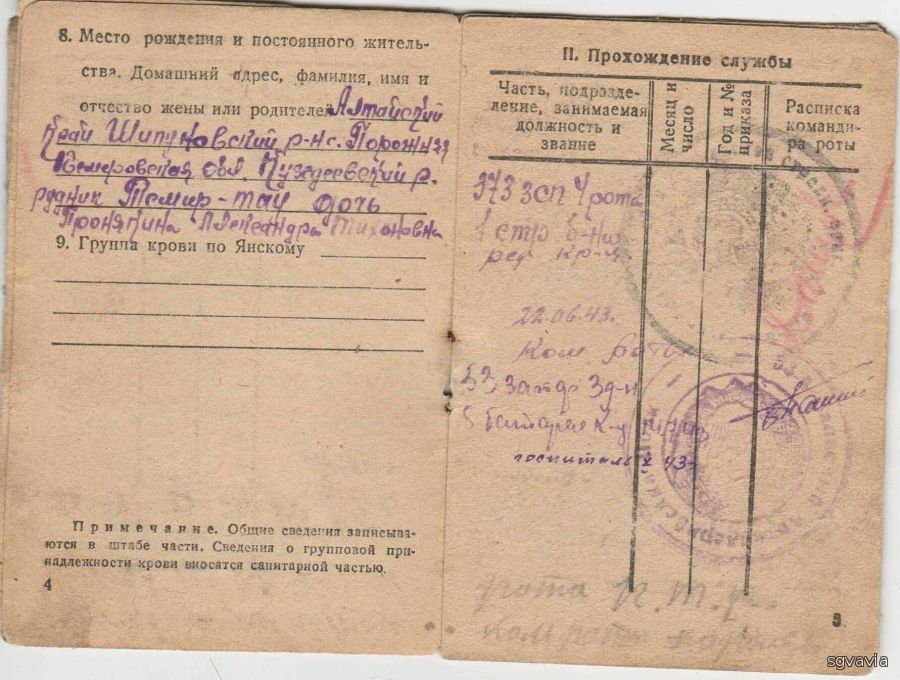 8. Место рождения и постоянного житель-
ства. Домашний адрес, фамилия, имя и
отчество жены или родителей Алтайский
край Шипуновский р-н с. Порожнее
Кемеровская обл Кузедеевский р.
рудник Темир-тау дочь
Пронякина Александра Тихоновна
9. Группа крови по Янскому
Примечание. Общие сведения записыва-
ются в штабе части. Сведения о групповой при-
надлежности крови вносятся санитарной частью.
4
II. Прохождение службы
Часть, подразде-
ление, занимаемая
должность и
звание
Месяц и
число
Год и №
приказа
Расписка
команди-
ра роты
373 ЗСП 4 рота
1 стр б-на
22.06.43.
Ком
батарея
госпиталь X 43
рота
3
sgvavia